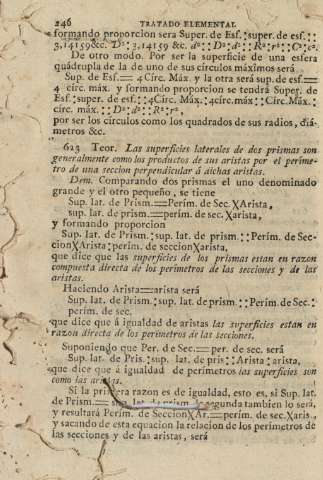 246 TRATADO ELEMENTAL
formando proporcion sera Super. de Esf.:super. de esf.::
3,14159&c. D²:3,14159 &c. d²::D²:d²::R²:r²::C²:c².
De otro modo. Por ser la superficie de una esfera
quádrupla de la de uno de sus círculos máximos será
Sup. de Esf.=4Círc. Máx. y la otra será sup.de esf.=
4 circ. máx. y formando proporcion se tendrá Super. de
Esf.:super. de esf.::4Circ. Máx.:4circ.máx::Circ.Máx.:
circ. máx.::D²:d²::R²:r².
por ser los círculos como los quadrados de sus radios, diá-
metros &c.
623 Teor. Las superficies laterales de dos prismas son
generalmente como los productos de sus aristas por el períme-
tro de una seccion perpendicular á dichas aristas.
Dem. Comparando dos prismas el uno denominado
grande y el otro pequeño, se tiene
Sup. lat. de Prism.=Perím. de Sec.XArista,
sup. lat. de prism.=perím. de sec.Xarista,
y formando proporcion
Sup. lat. de Prism.:sup. lat. de prism.::Perím. de Sec-
cionXArista:perím. de seccionXarista,
que dice que las superficies de los prismas estan en razon
compuesta directa de los perímetros de las secciones y de las
aristas.
Haciendo Arista=arista será
Sup. lat. de Prism.:sup. lat. de prism.::Perím. de Sec.:
perím. de sec.
que dice que á igualdad de aristas las superficies estan en
razon directa de los perímetros de las secciones.
Suponiendo que Per. de Sec.=per. de sec. será
Sup. lat. de Pris.:sup. lat. de pris.::Arista:arista,
que dice que á igualdad de perímetros las superficies son
como las aristas.
Si la primera razon es de igualdad, esto es, si Sup. lat.
de Prism.=sup. lat. de prism. la segunda tambien lo será,
y resultará Perím. de SeccionXAr.=perím. de sec.Xaris.,
y sacando de esta equacion la relacion de los perímetros de
las secciones y de las aristas, será